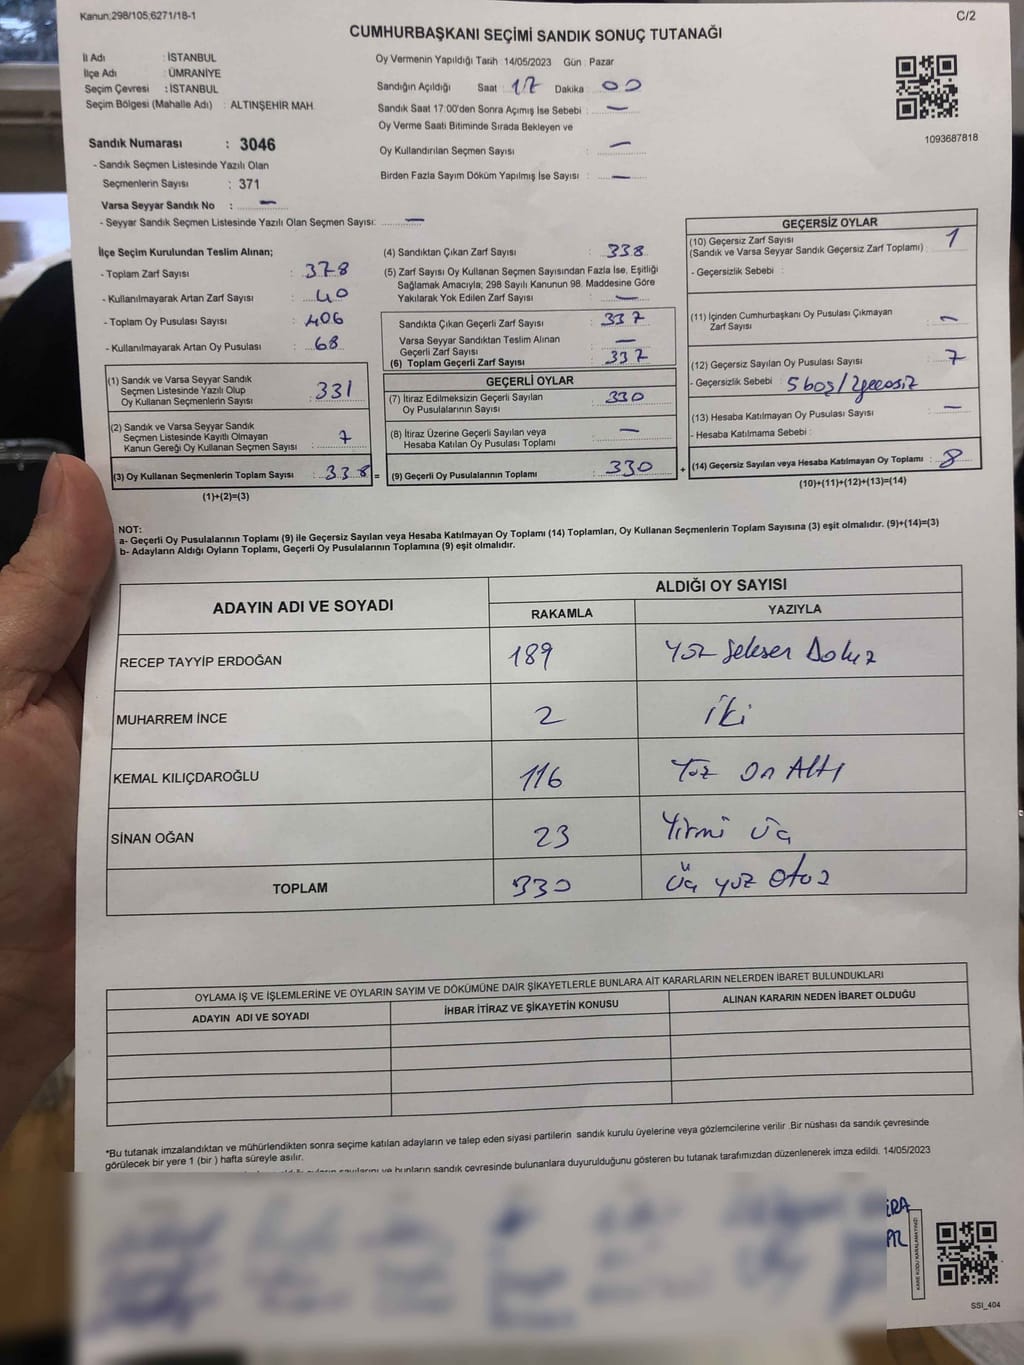 Kanun;298/105;6271/18-1
C/2
CUMHURBAŞKANI SEÇİMİ SANDIK SONUÇ TUTANAĞI
İl Adı : İSTANBUL
İlçe Adı : ÜMRANİYE
Seçim Çevresi : İSTANBUL
Seçim Bölgesi (Mahalle Adı) : ALTINŞEHİR MAH.
Sandık Numarası : 3046
- Sandık Seçmen Listesinde Yazılı Olan
Seçmenlerin Sayısı : 371
Varsa Seyyar Sandık No : —
- Seyyar Sandık Seçmen Listesinde Yazılı Olan Seçmen Sayısı: —
Oy Vermenin Yapıldığı Tarih :14/05/2023 Gün : Pazar
Sandığın Açıldığı Saat : 17 Dakika : 00
Sandık Saat 17:00'den Sonra Açımış İse Sebebi : —
Oy Verme Saati Bitiminde Sırada Bekleyen ve
Oy Kullandırılan Seçmen Sayısı : —
Birden Fazla Sayım Döküm Yapılmış İse Sayısı : —
1093687818
İlçe Seçim Kurulundan Teslim Alınan;
- Toplam Zarf Sayısı : 378
- Kullanılmayarak Artan Zarf Sayısı : 40
- Toplam Oy Pusulası Sayısı : 406
- Kullanılmayarak Artan Oy Pusulası : 68
(1) Sandık ve Varsa Seyyar Sandık
Seçmen Listesinde Yazılı Olup
Oy Kullanan Seçmenlerin Sayısı : 331
(2) Sandık ve Varsa Seyyar Sandık
Seçmen Listesinde Kayıtlı Olmayan
Kanun Gereği Oy Kullanan Seçmen Sayısı : 7
(3) Oy Kullanan Seçmenlerin Toplam Sayısı : 338 =
(1)+(2)=(3)
(4) Sandıktan Çıkan Zarf Sayısı : 338
(5) Zarf Sayısı Oy Kullanan Seçmen Sayısından Fazla İse, Eşitliği
Sağlamak Amacıyla; 298 Sayılı Kanunun 98. Maddesine Göre
Yakılarak Yok Edilen Zarf Sayısı : —
Sandıkta Çıkan Geçerli Zarf Sayısı : 337
Varsa Seyyar Sandıktan Teslim Alınan
Geçerli Zarf Sayısı : —
(6) Toplam Geçerli Zarf Sayısı : 337
GEÇERLİ OYLAR
(7) İtiraz Edilmeksizin Geçerli Sayılan
Oy Pusulalarının Sayısı : 330
(8) İtiraz Üzerine Geçerli Sayılan veya
Hesaba Katılan Oy Pusulası Toplamı : —
(9) Geçerli Oy Pusulalarının Toplamı : 330 +
GEÇERSİZ OYLAR
(10) Geçersiz Zarf Sayısı
(Sandık ve Varsa Seyyar Sandık Geçersiz Zarf Toplamı) : 1
- Geçersizlik Sebebi :
(11) İçinden Cumhurbaşkanı Oy Pusulası Çıkmayan
Zarf Sayısı : —
(12) Geçersiz Sayılan Oy Pusulası Sayısı : 7
- Geçersizlik Sebebi : 5 boş / 2 geçersiz
(13) Hesaba Katılmayan Oy Pusulası Sayısı : —
- Hesaba Katılmama Sebebi :
(14) Geçersiz Sayılan veya Hesaba Katılmayan Oy Toplamı : 8
(10)+(11)+(12)+(13)=(14)
NOT:
a- Geçerli Oy Pusulalarının Toplamı (9) ile Geçersiz Sayılan veya Hesaba Katılmayan Oy Toplamı (14) Toplamları, Oy Kullanan Seçmenlerin Toplam Sayısına (3) eşit olmalıdır. (9)+(14)=(3)
b- Adayların Aldığı Oyların Toplamı, Geçerli Oy Pusulalarının Toplamına (9) eşit olmalıdır.
ADAYIN ADI VE SOYADI
ALDIĞI OY SAYISI
RAKAMLA YAZIYLA
RECEP TAYYİP ERDOĞAN 189 Yüz Seksen Dokuz
MUHARREM İNCE 2 iki
KEMAL KILIÇDAROĞLU 116 Yüz On Altı
SİNAN OĞAN 23 Yirmi üç
TOPLAM 330 Üç yüz otuz
OYLAMA İŞ VE İŞLEMLERİNE VE OYLARIN SAYIM VE DÖKÜMÜNE DAİR ŞİKAYETLERLE BUNLARA AİT KARARLARIN NELERDEN İBARET BULUNDUKLARI
ADAYIN ADI VE SOYADI İHBAR İTİRAZ VE ŞİKAYETİN KONUSU ALINAN KARARIN NEDEN İBARET OLDUĞU
*Bu tutanak imzalandıktan ve mühürlendikten sonra seçime katılan adayların ve talep eden siyasi partilerin sandık kurulu üyelerine veya gözlemcilerine verilir .Bir nüshası da sandık çevresinde
görülecek bir yere 1 (bir ) hafta süreyle asılır.
sayılarını ve bunların sandık çevresinde bulunanlara duyurulduğunu gösteren bu tutanak tarafımızdan düzenlenerek imza edildi. 14/05/2023
SSI_404